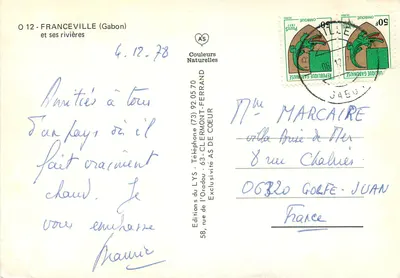 O 12 - FRANCEVILLE (Gabon)
et ses rivières
4.12.78
Amitiés à tous
d'un pays où il
fait vraiment
chaud. Je
vous embrasse
AS
Couleurs
Naturelles
Editions du LYS - Téléphone (73) 92 05 70
58, rue de l'Oradou - 63 - CLERMONT-FERRAND
Exclusivité AS DE COEUR
REPUBLIQUE GABONAISE
50F
REPUBLIQUE GABONAISE
50F
VILLE
Mme MARCAIRE
villa Brise de Mer
8 rue Chabrier
06320 GOLFE-JUAN
France